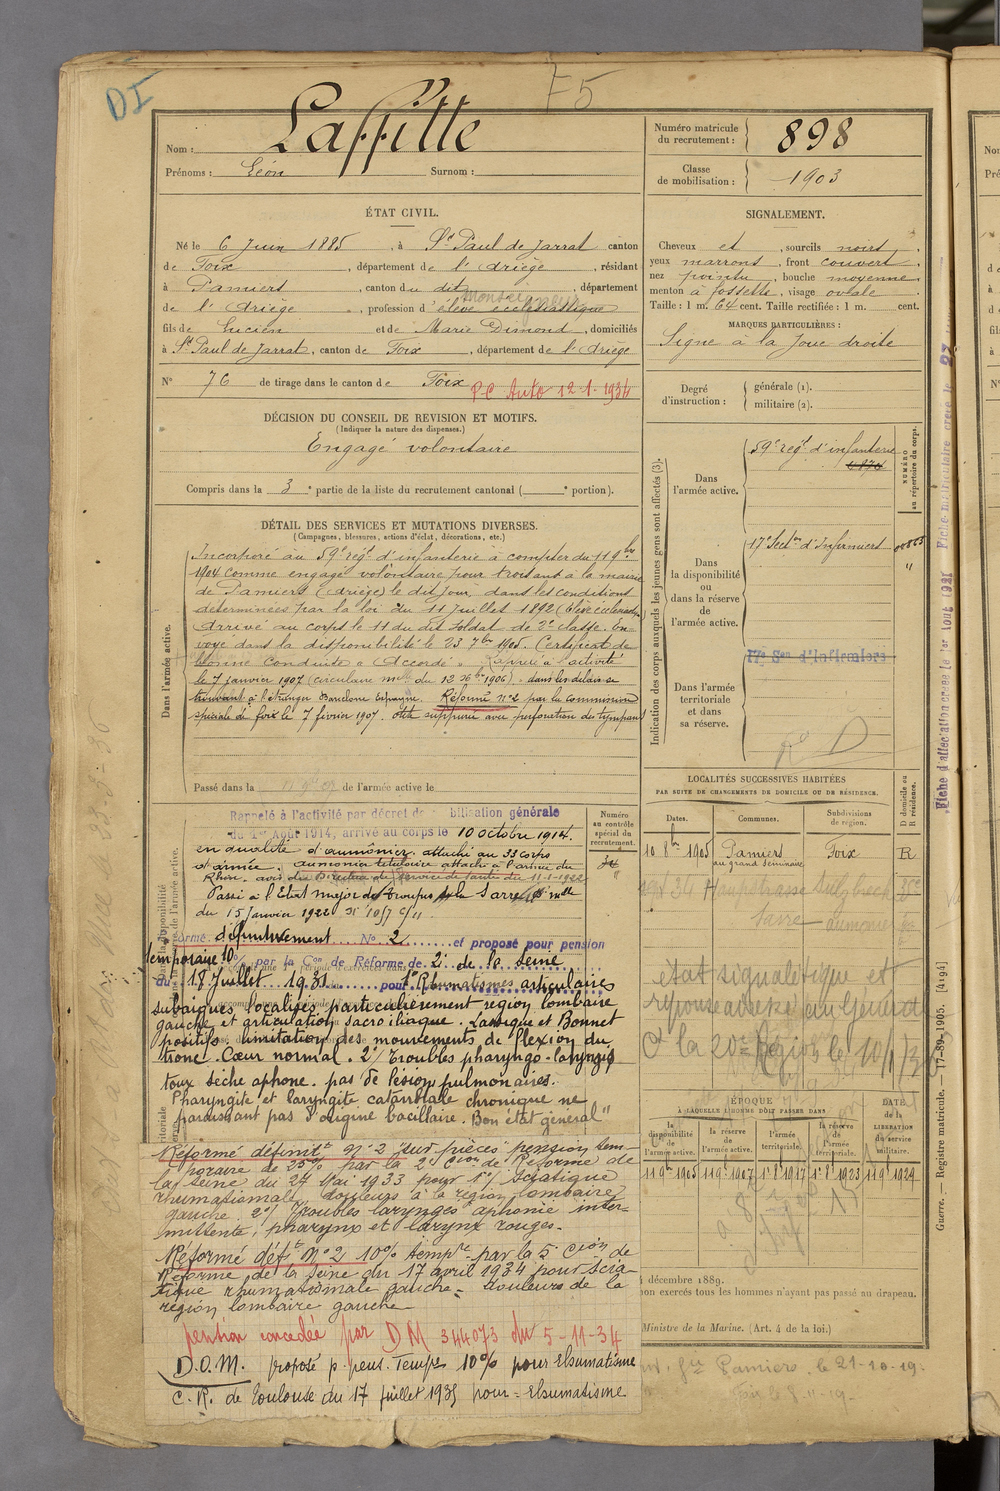 DI
F5
Nom : Laffitte
Prénoms : Léon Surnom :
Numéro matricule du recrutement : 898
Classe de mobilisation : 1903
ÉTAT CIVIL.
Né le 6 Juin 1885, à St Paul de Jarrat canton
de Foix, département de l'Ariège, résidant
à Pamiers, canton du dit, département
de l'Ariège, profession d'élève ecclésiastique
Monseigneur
fils de Lucien et de Marie Dimond, domiciliés
à St Paul de Jarrat, canton de Foix, département de l'Ariège
N° 76 de tirage dans le canton de Foix
PC Auto 12-1-1934
SIGNALEMENT.
Cheveux et, sourcils noirs,
yeux marrons, front couvert,
nez pointu, bouche moyenne
menton à fossette, visage ovale
Taille : 1 m. 64 cent. Taille rectifiée : 1 m. cent.
MARQUES PARTICULIÈRES :
Signe à la joue droite
DÉCISION DU CONSEIL DE REVISION ET MOTIFS.
(Indiquer la nature des dispenses.)
Engagé volontaire
Compris dans la 3e partie de la liste du recrutement cantonal ( e portion).
Degré d'instruction : générale (1).
militaire (2).
DÉTAIL DES SERVICES ET MUTATIONS DIVERSES.
(Campagnes, blessures, actions d'éclat, décorations, etc.)
Dans l'armée active.
Incorporé au 59e régt d'infanterie à compter du 11 9bre
1904 comme engagé volontaire pour trois ans à la mairie
de Pamiers (Ariège) le dit jour, dans les conditions
déterminées par la loi du 11 Juillet 1892 (élève ecclésiastique
Arrivé au corps le 11 du dit soldat de 2e classe. En-
voyé dans la disponibilité le 23 7bre 1905. Certificat de
bonne conduite "Accordé". Rappelé à l'activité
le 7 janvier 1907 (circulaire mlle du 12 Xbre 1906) dans les délais se
trouvant à l'étranger Barcelone Espagne. Réformé n°2 par la commission
spéciale de Foix le 7 février 1907. otite suppurée avec perforation du tympan
Passé dans la de l'armée active le
Indication des corps auxquels les jeunes gens sont affectés (3).
NUMÉRO au répertoire du corps.
Dans l'armée active.
59e régt d'infanterie
Dans la disponibilité ou dans la réserve de l'armée active.
17e Secton d'Infirmiers
Dans l'armée territoriale et dans sa réserve.
17e Son d'Infirmiers
Rappelé à l'activité par décret de bilisation générale
du 1er Août 1914, arrivé au corps le 10 octobre 1914.
en qualité d'aumônier. attaché au 33 corps
d'armée. aumônier titulaire attaché à l'armée du
Rhin. avis du Directeur du Service de Santé du 11-1-1922
Passé à l'Etat major des troupes de la Sarre mlle
du 15 janvier 1922 N° 1057 C/11
Numéro au contrôle spécial du recrutement.
formé définitivement N° 2 et proposé pour pension
temporaire 10% par la Con de Réforme de 2e de la Seine
du 18 Juillet 1931 pour 1° Rhumatismes articulaires
subaigus localisés particulièrement région lombaire
gauche et articulation sacro iliaque. Lassègue et Bonnet
positifs limitation des mouvements de flexion du
tronc. Cœur normal. 2° troubles pharyngo-laryngés
toux sèche aphone. pas de lésion pulmonaires.
Pharyngite et laryngite catarrhale chronique ne
paraissant pas d'origine bacillaire. Bon état général"
Réformé définitt n°2 "sur pièces" pension tem-
poraire de 25% par la 2e Cion de Réforme de
la Seine du 27 Mai 1933 pour 1°/ sciatique
rhumatismale douleurs à la région lombaire
gauche 2°/ Troubles laryngés aphonie inter-
mittente, pharynx et larynx rouges.-
Réformé déft n°2 10% tempre par la 5e Cion de
Réforme de la Seine du 17 avril 1934 pour scia-
tique rhumatismale gauche - douleurs de la
région lombaire gauche
pension concédée par DM 344073 du 5-11-34
D.O.M. proposé p. pens. Tempre 10% pour Rhumatisme
C.R. de Toulouse du 17 juillet 1935 pour = Rhumatisme
LOCALITÉS SUCCESSIVES HABITÉES
PAR SUITE DE CHANGEMENTS DE DOMICILE OU DE RÉSIDENCE.
Dates. Communes. Subdivisions de région. D domicile ou R résidence.
10 8bre 1905 Pamiers au grand séminaire Foix R
Hauptstrasse Sulzbach
Sarre aumônier
état signalétique et
10/1/36
ÉPOQUE À LAQUELLE L'HOMME DOIT PASSER DANS
DATE de la LIBÉRATION du service militaire.
la disponibilité de l'armée active. la réserve de l'armée active. l'armée territoriale. la réserve de l'armée territoriale.
11 9bre 1905 11 9bre 1907 1er 8bre 1917 1er 8bre 1923 11 9bre 1929
décembre 1889.
non exercés tous les hommes n'ayant pas passé au drapeau.
Ministre de la Marine. (Art. 4 de la loi.)
Pamiers, le 21-10-19.
Foix le 8-11-19-
Guerre. — Registre matricule. — 17-89-1905. [4194]
Fiche d'affectation créée le 1er Août 1921
Fiche matriculaire créée le 27